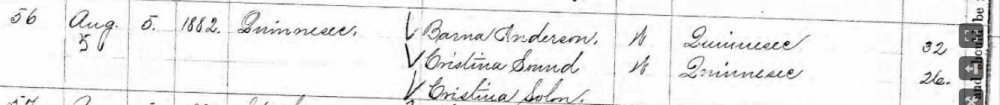 56 Aug. 5. 1882. Quinnesec. √ Barna Anderson. W Quinnesec 32
5 √ Cristina Sound W Quinnesec 26.
√ Cristina Solon.
57
and should be